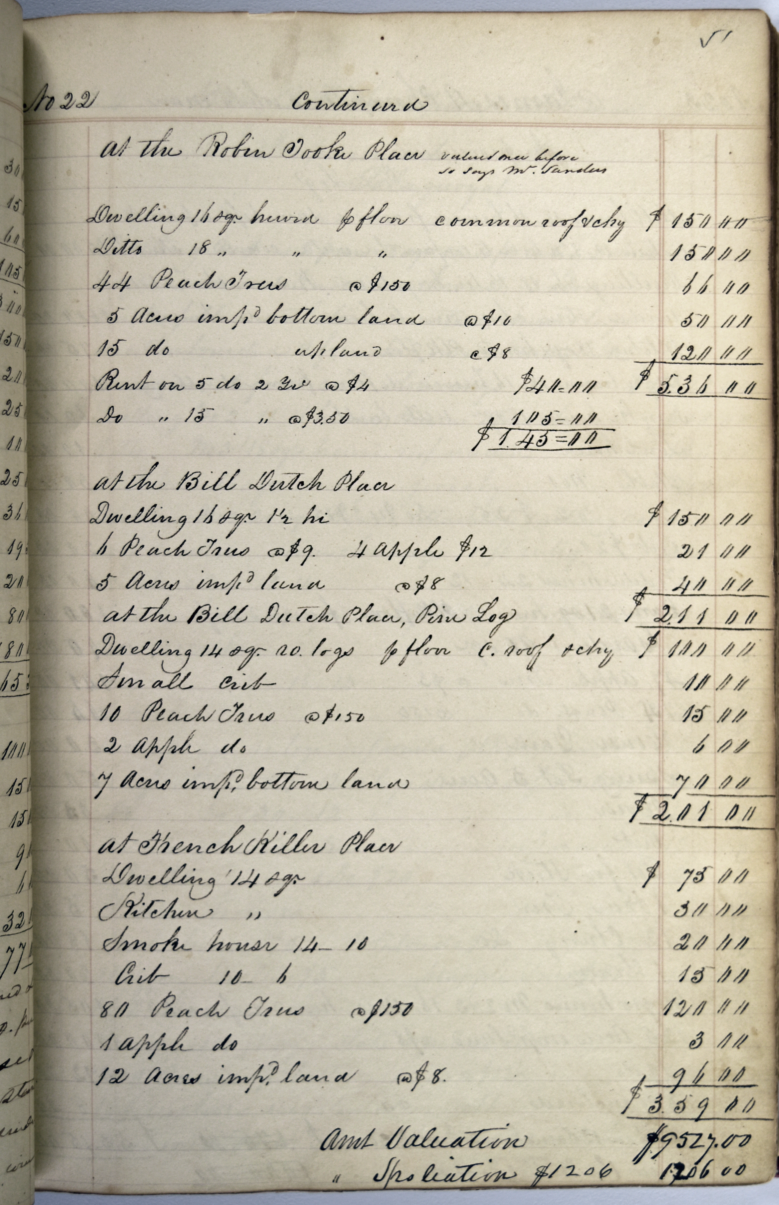 51
No 22 Continued
at the Robin Tooke Place valued once before
so says Mr. Sanders
Dwelling 16 sqr hewed p floor common roof & chy $ 150 00
Ditto 18 " " " 150 00
44 Peach Trees @ $1 50 66 00
5 Acres impd bottom land @ $10 50 00
15 do upland @ $8 120 00
Rent on 5 do 2 Yr @ $4 $40=00 $ 536 00
Do " 15 " @ $3.50 105=00
$ 145=00
at the Bill Dutch Place
Dwelling 16 sqr 1½ hi $ 150 00
6 Peach Trees @ $9. 4 apple $12 21 00
5 Acres impd land @ $8 40 00
at the Bill Dutch Place, Pine Log $ 211 00
Dwelling 14 sqr ro. logs p floor c. roof & chy $ 100 00
Small crib 10 00
10 Peach Trees @ $1 50 15 00
2 apple do 6 00
7 Acres impd bottom land 70 00
$ 201 00
at French Killer Place
Dwelling 14 sqr $ 75 00
Kitchen " 30 00
Smoke house 14 - 10 20 00
Crib 10 - 6 15 00
80 Peach Trees @ $1 50 120 00
1 apple do 3 00
12 Acres impd land @ $8. 96 00
$ 359 00
Amt Valuation $9527.00
" Spoliation $1206 1206 00